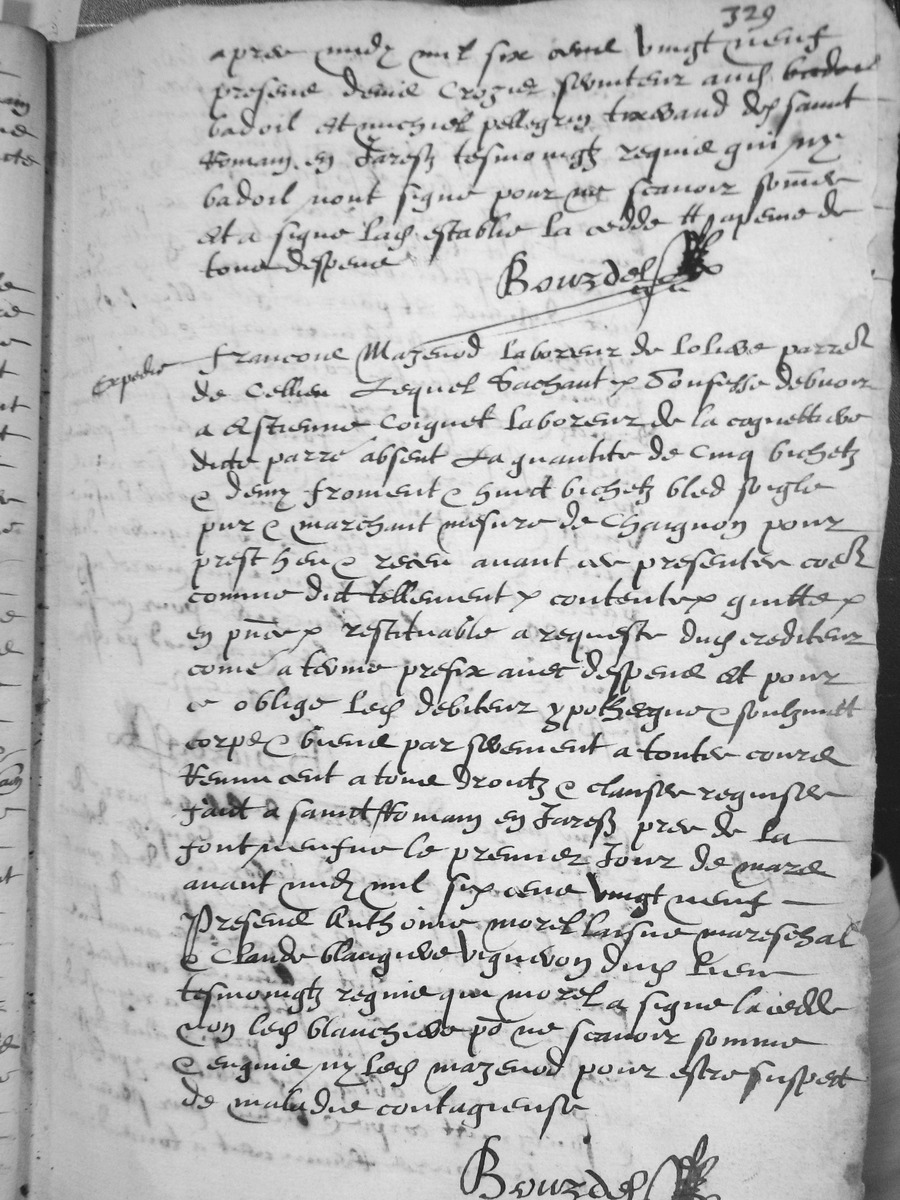 329
apres midy mil six cens vingt neuf
presens denis Crozier serviteur aud
badoil et michiel pellegrin tisserand dud sainct
Romain en Jarestz tesmoingtz requis qui ny
badoil n'ont signe pour ne scavoir sommes
et a signe lad establie la cedde a peine de
tous despens
Bourdel
Expedie
Francois Mazenod laboreur de lolivee parresse
de Cellieu Lequel sachant confesse debvoir
a Estienne Coignet laboreur de la cognettiere
dicte parre absent La quantite de Cinq bichetz
& demy froment & huict bichetz bled soigle
pur & marchant mesure de Chaignon pour
prest heu & receu avant ces presentes
comme dict tellement contente quitte
en pnce restituable a requeste dud crediteur
come a terme prefix avec despens et pour
ce oblige led debiteur ypotheque & soubzmect
corps & biens par serement a toutes cours
Renuncent a tous droictz & clauses requises
faict a sainct Romain en Jarestz pres de la
font neufve le premier Jour de mars
avant midy mil six cens vingt neuf
Presens Anthoine morel laisne mareschal
& Claude blanchiere vigneron dud lieu
tesmoingtz requis qui morel a signe la cedde
non led blanchiere po ne scavoir somme
& enquis ny led mazenod pour estre suspect
de maladie contagieuse
Bourdel